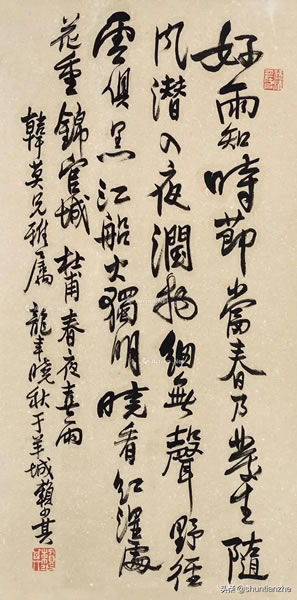 好雨知時節當春乃發生隨
风潛入夜潤物細無聲野徑
雲俱黑江船火獨明曉看紅溼處
花重錦官城 杜甫春夜喜雨
韓莫兄雅屬 龍年曉秋于羊城賴少其
头条 @shuntianzhe